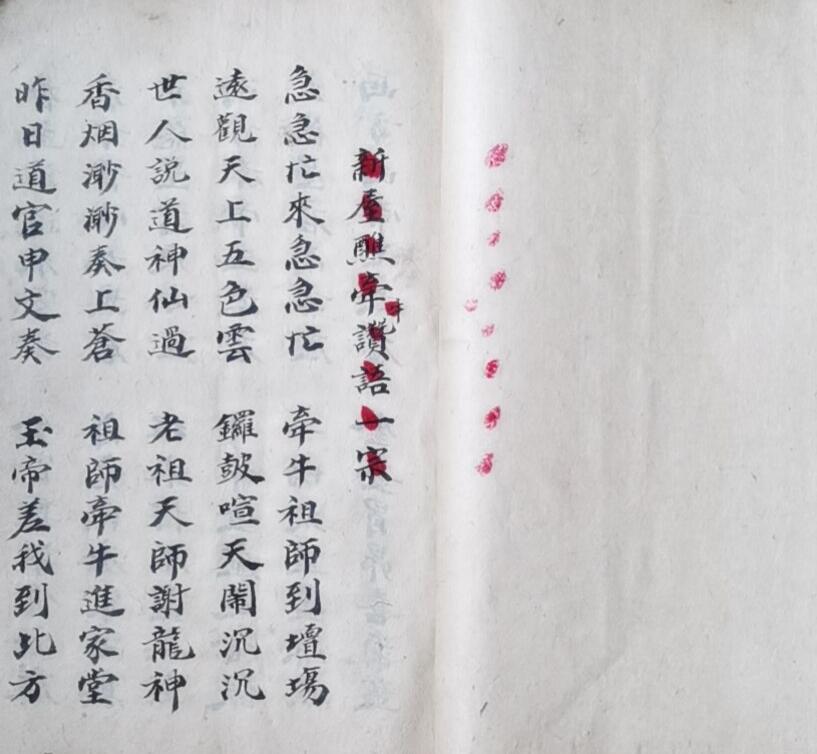 新屋醮牽牛讚語一宗
急急忙來急急忙 牽牛祖師到壇塲
遠觀天上五色雲 鑼皷喧天鬧沉沉
世人説道神仙過 老祖天師謝龍神
香烟渺渺奏上蒼 祖師牽牛進家堂
昨日道官申文奏 玉帝差我到此方